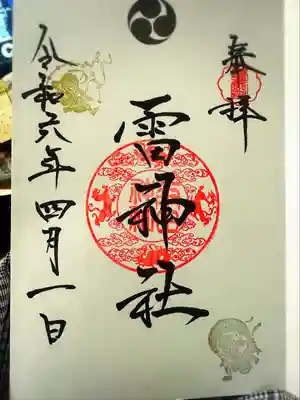 奉拝
雷神社
令和六年四月一日